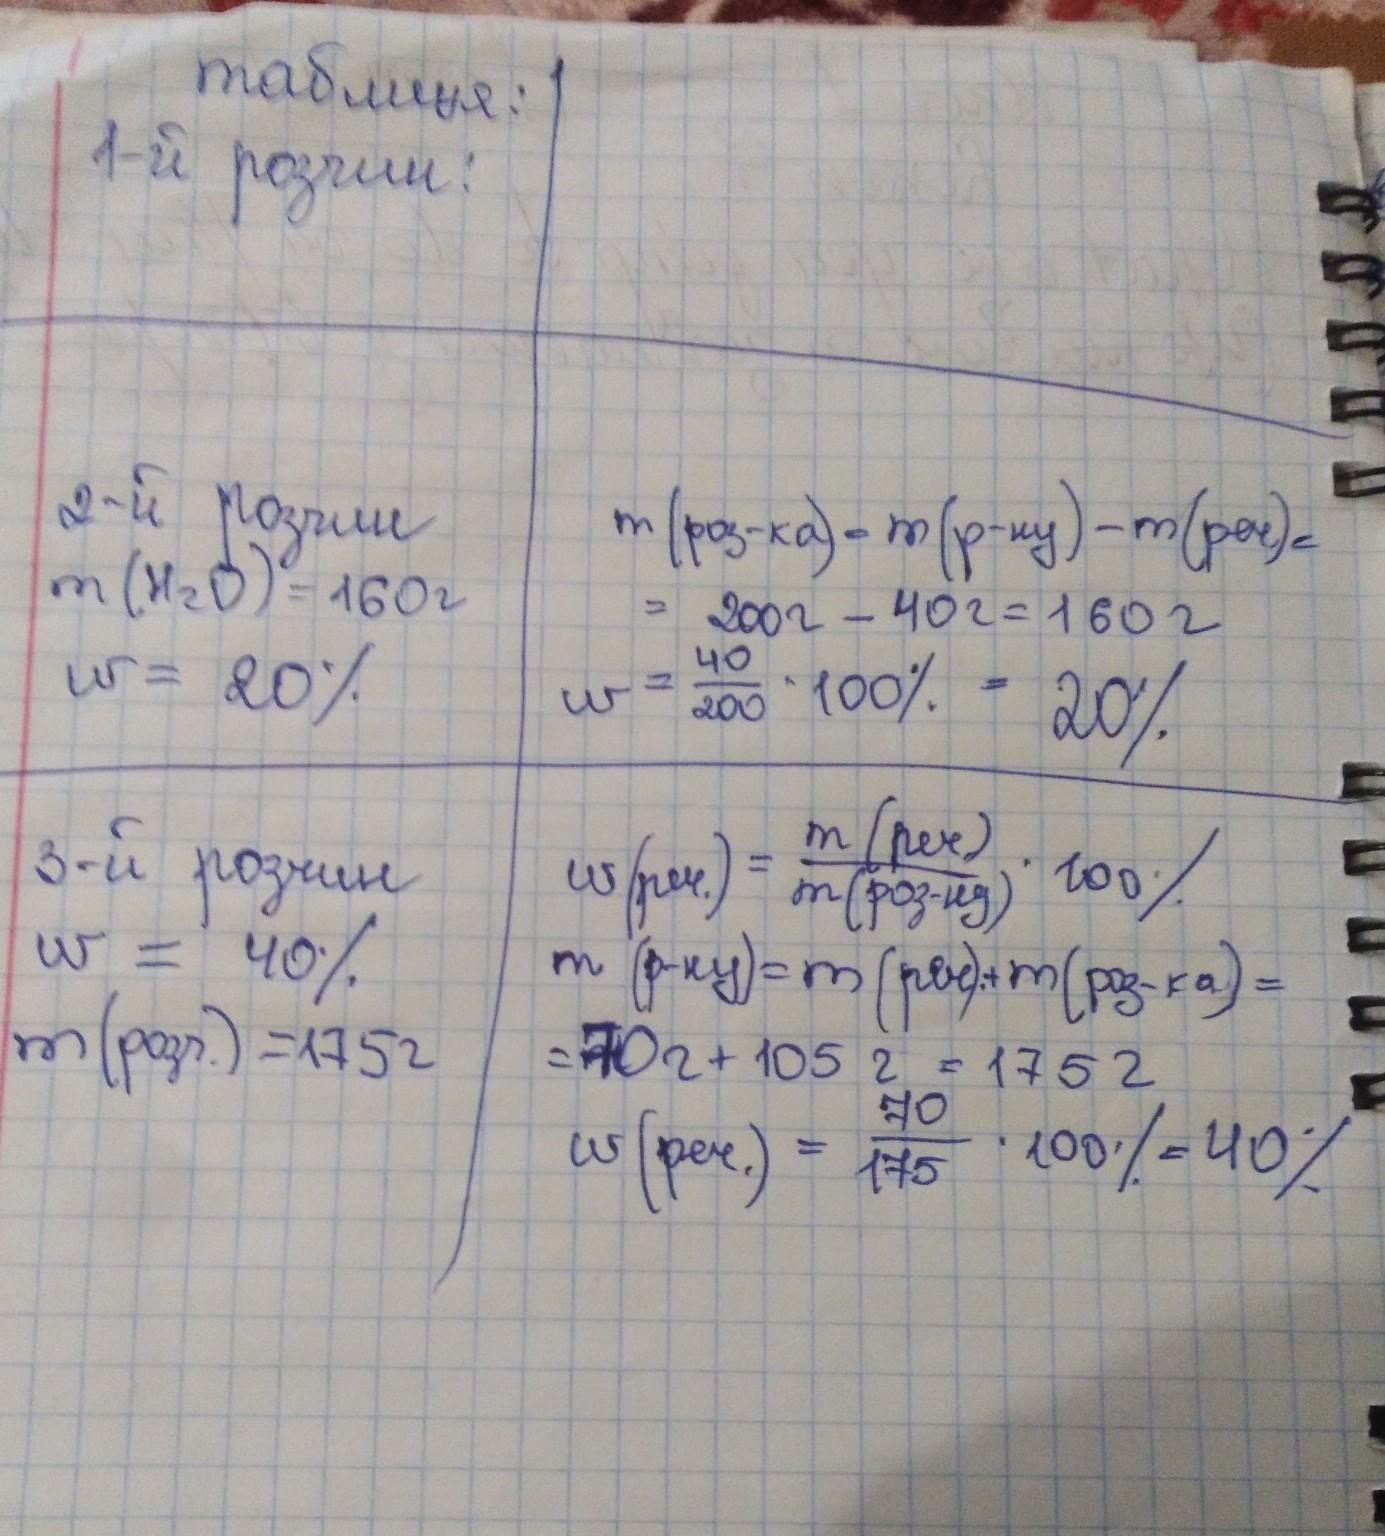 таблиця:
1-й розчин:
2-й розчин
m(H₂O)=160г
w = 20%
m(роз-ка)=m(р-ну)-m(реч.)=
= 200г - 40г = 160г
w = 40/200 · 100% = 20%
3-й розчин
w = 40%
m(розч.)=175г
w(реч.) = m(реч)/m(роз-ну) · 100%
m (р-ну)=m(реч).+m(роз-ка)=
=70г+105 г = 175г
w(реч.) = 70/175 · 100%=40%